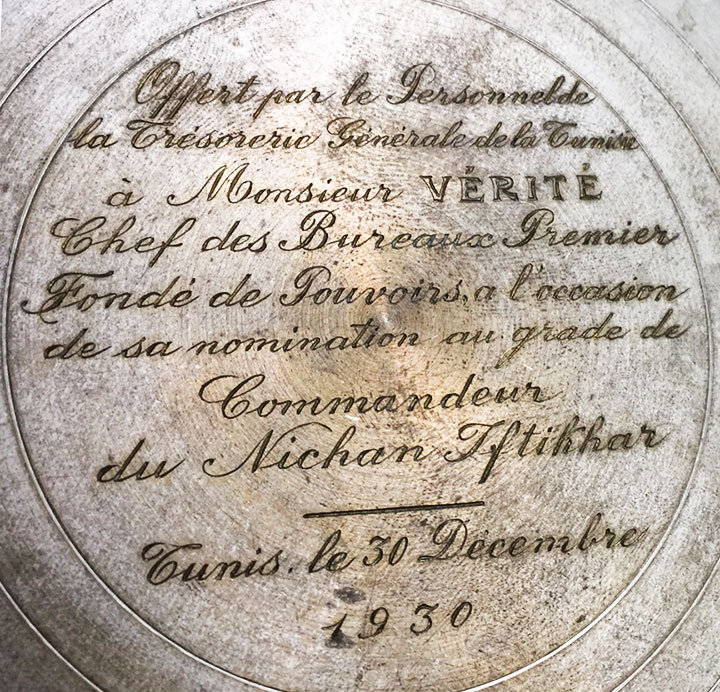 Offert par le Personnel de
la Trésorerie Générale de la Tunisie
à Monsieur VÉRITÉ
Chef des Bureaux Premier
Fondé de Pouvoirs, a l'occasion
de sa nomination au grade de
Commandeur
du Nichan Iftikhar
Tunis. le 30 Décembre
1930